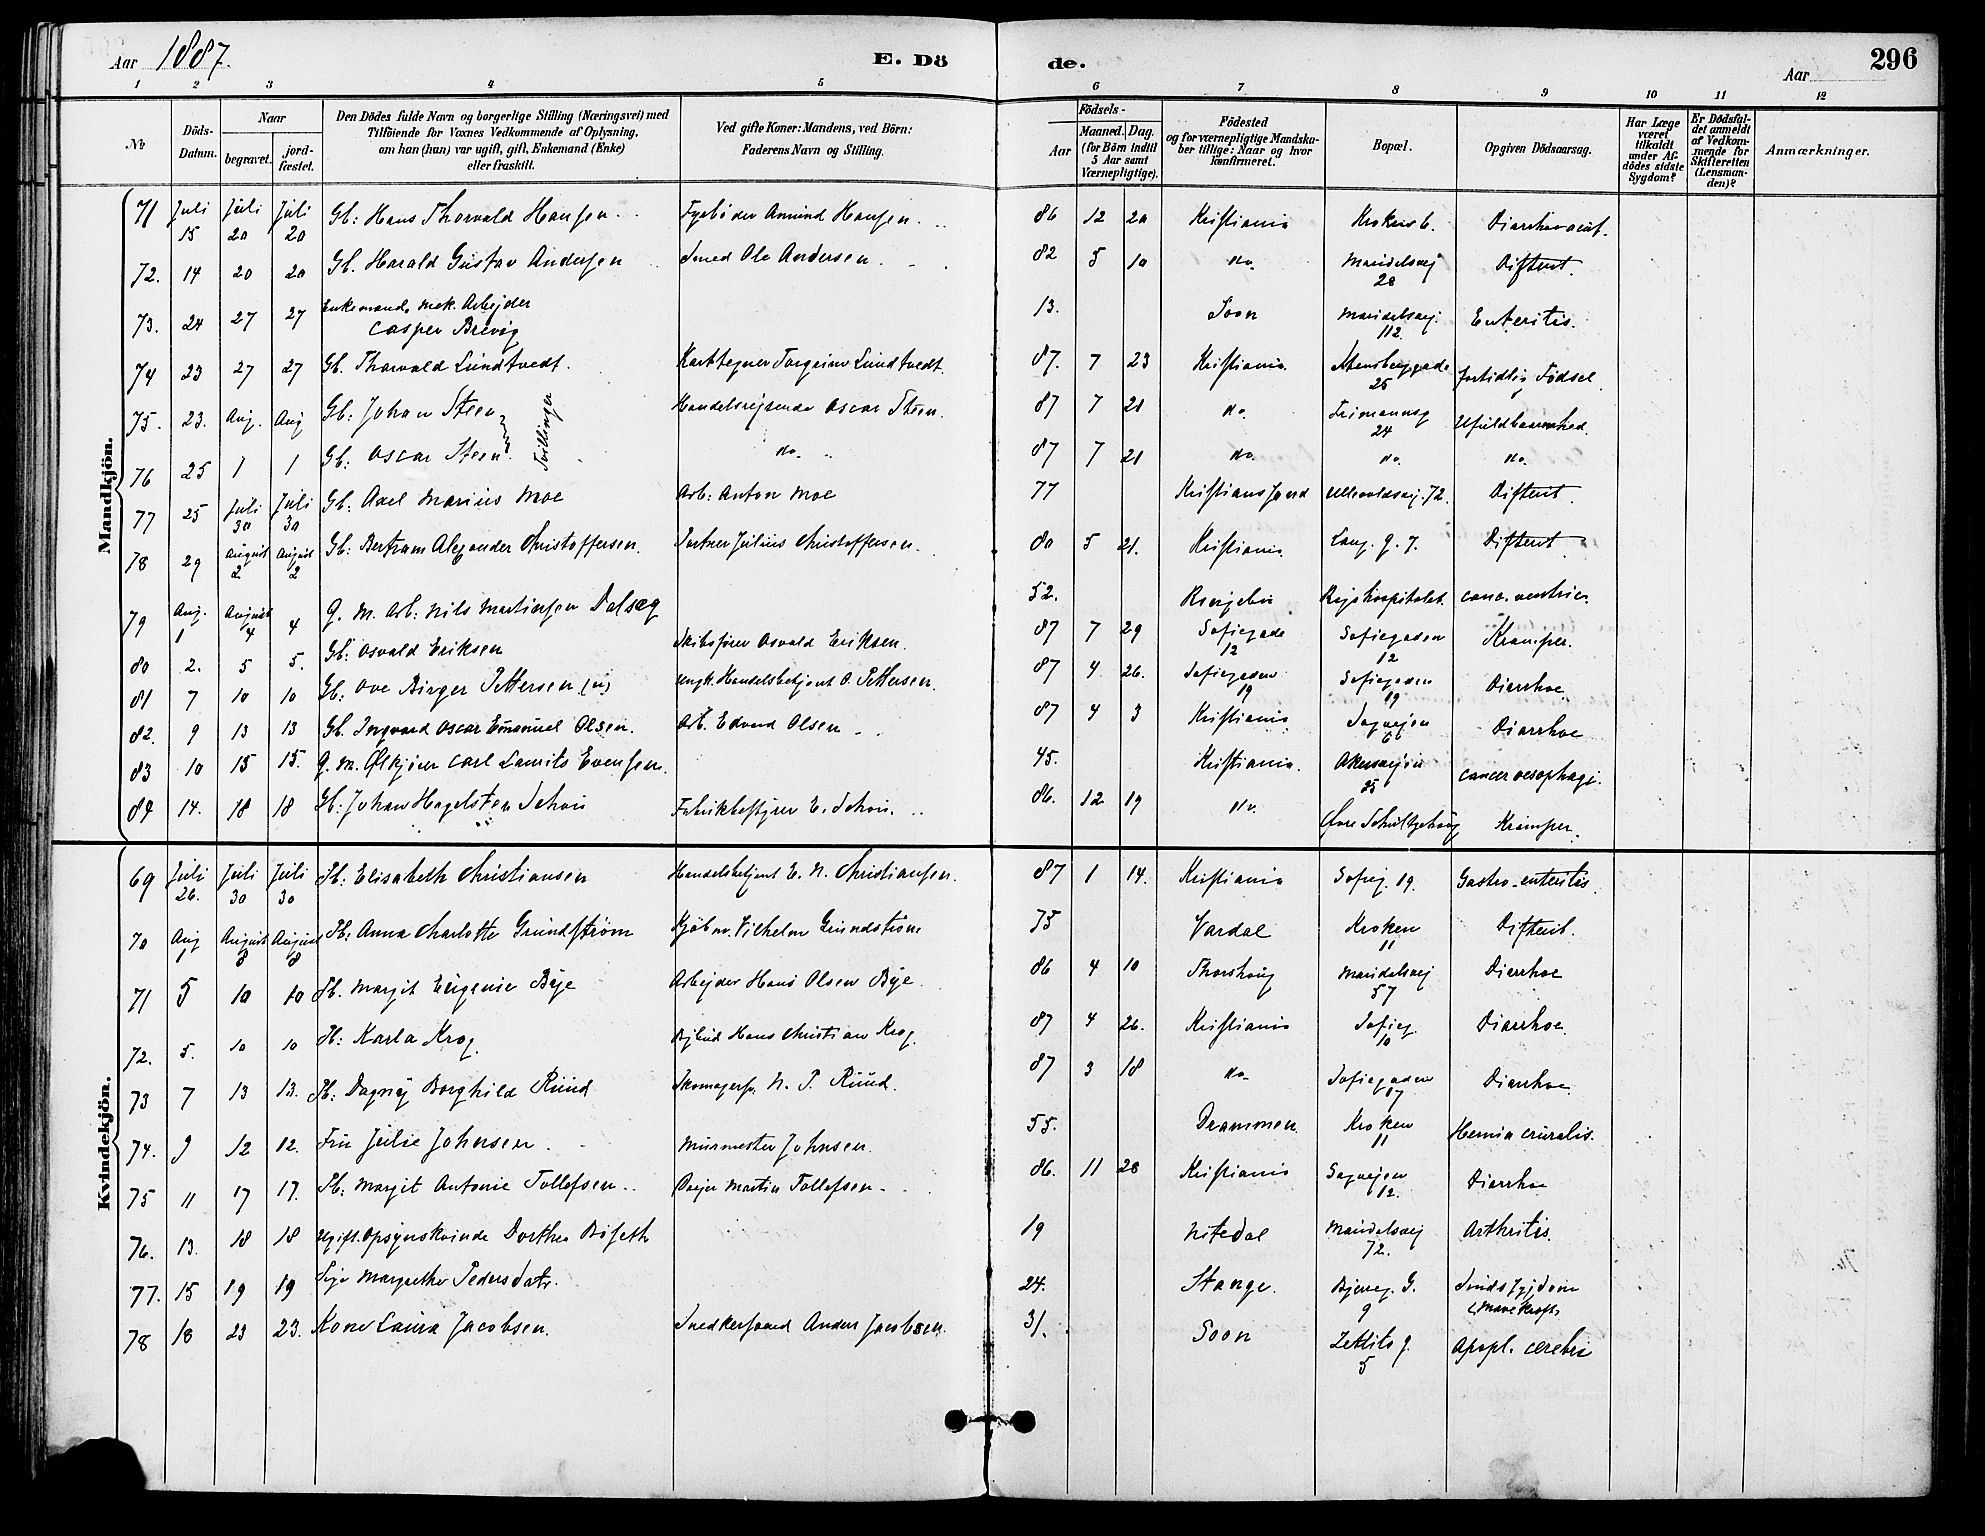 Aar 1887.
E. Dö
de.
Aar
296
1 2 3 4 5 6 7 8 9 10 11 12
No
Döds-Datum.
Naar
begravet.
jord-fæstet.
Den Dödes fulde Navn og borgerlige Stilling (Næringsvei) med
Tilföiende for Voxnes Vedkommende af Oplysning,
om han (hun) var ugift, gift, Enkemand (Enke)
eller fraskilt.
Ved gifte Koner: Mandens, ved Börn:
Faderens Navn og Stilling.
Födsels-
Aar
Maaned. Dag.
(for Börn indtil
5 Aar samt
Værnepligtige).
Födested
og for værnepligtige Mandska-
ber tillige: Naar og hvor
konfirmeret.
Bopæl.
Opgiven Dödsaarsag.
Har Læge
været
tilkaldt
under Af-
dödes sidste
Sygdom?
Er Dödsfal-
det anmeldt
af Vedkom-
mende for
Skifteretten
(Lensman-
den)?
Anmærkninger.
Mandkjön.
71 Juli 15 Juli 20 Juli 20 Gb: Hans Thorvald Hansen Fyrbøder Amund Hansen 86 12 20 Kristiania Kroken 6. Diarrhoe acut.
72. 14 20 20 Gb. Harald Gustav Andersen Smed Ole Andersen 82 5 10 do. Maridalsvej 28 Difterit.
73. 24 27 27 Enkemand, mek. Arbejder Casper Brevig 13. Soon Maridalsvej. 112. Enteritis.
74 23 27 27 Gb. Thorvald Lundtvedt. Karttegner Torgrim Lundtvedt. 87. 7 23 Kristiania. Stensberggade 25 fortidlig Fødsel
75. 23. Aug. Aug Gb: Johan Steen Tvillinger Handelsrejsende Oscar Steen. 87 7 21 do. Frimannsg 24 Ufuldbaarenhed.
76 25 1 1 Gb: Oscar Steen do. 87 7 21 do. do. do.
77 25 Juli 30 Juli 30 Gb: Axel Marius Moe Arb: Anton Moe 77 Kristianssund Ullevoldsvej. 72. Difterit.
78 29 August 2 August 2 Gb: Bertram Alexander Christoffersen. Portner Julius Christoffersen. 80 5 21. Kristiania. Lang. g. 7. Difterit
79 Aug. 1 August 4 4 G. M. Arb: Nils Martinsen Dalseg 52. Ringebu Rigshospitalet canc. ventric.
80 2. 5 5. Gb: Osvald Eriksen Skibsfører Osvald Eriksen. 87 7 29 Sofiegade 12 Sofiegaden 12 Kramper.
81 7 10 10 Gb: Ove Birger Pettersen (u) ungk. Handelsbetjent O. Pettersen. 87 4 26. Sofiegaden 19 Sofiegaden 19 Diarrhoe
82. 9 13 13 Gb. Ingvard Oscar Emanuel Olsen. Arb. Edvard Olsen 87 4 3 Kristiania Sagvejen 6 Diarrhoe
83 10 15 15. G. M. Ølkjører Carl Laurits Evensen. 45. Kristiania. Akersvejen 25 cancer oesophagi.
84 14. 18 18 Gb: Johan Hagelsten Schou Fabrikbestyrer E. Schou. 86. 12 19 do. Øvre Schultzehaug Kramper.
Kvindekjön.
69 Juli 26. Juli 30 Juli 30 Pb: Elisabeth Christiansen Handelsbetjent E. N. Christiansen. 87 1 14. Kristiania Sofieg. 19. Gastro-enteritis.
70 Aug 1 August 8 August 8 Pb: Anna Charlotte Grundstrøm Kjøbm. Vilhelm Grundstrøm 75 Vardal Kroken 11 Difterit.
71 5 10 10 Pb. Margit Eugenie Bye Arbejder Hans Olsen Bye. 86 4 10 Thorshaug Maridalsvej 57 Diarrhoe
72. 5. 10 10 Pb: Karla Krog Bybud Hans Christian Krog. 87 4 26. Kristiania Sofieg. 10 Diarrhoe.
73 7 13 13. Pb: Dagny Borghild Ruud Skomagersv. N. P. Ruud. 87 3 18 do. Sofiegaden 17 Diarrhoe.
74. 9 12 12. Fru Julie Johnsen Murmester Johnsen. 55. Drammen. Kroken 11 Hernia cruralis.
75 11 17 17. Pb: Margit Antonie Tollefsen Drejer Martin Tollefsen 86. 11 28 Kristiania Sagvejen 12. Diarrhoe
76. 13. 18 18 Ugift. Opsynskvinde Dorthea Bøseth 19 Nitedal Maridalsvej 72. Arthritis.
77. 15 19 19 Pige Margrethe Pedersdatr. 24. Stange. Bjerreg. G. 9 Sindssygdom (Mavekræft)
78 18 23 23. Kone Laura Jacobsen. Snedkersvend Anders Jacobsen. 31. Soon Zetlitz g. 5 Apopl. cerebri